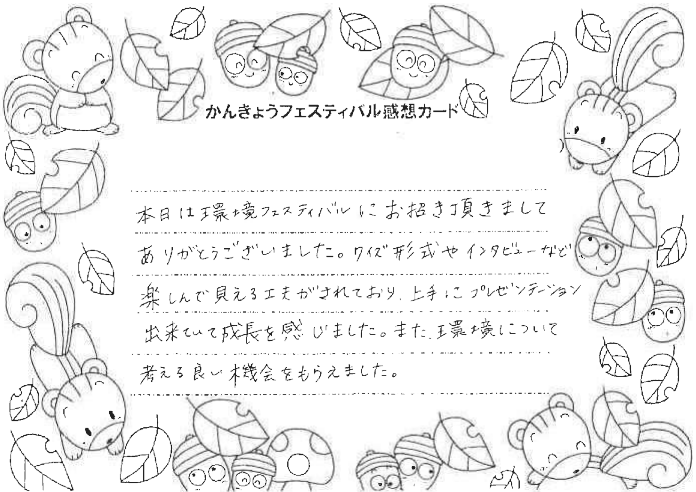 かんきょうフェスティバル感想カード
本日は環境フェスティバルにお招き頂きまして
ありがとうございました。クイズ形式やインタビューなど
楽しんで見える工夫がされており、上手にプレゼンテーション
出来ていて成長を感じました。また、環境について
考える良い機会をもらえました。